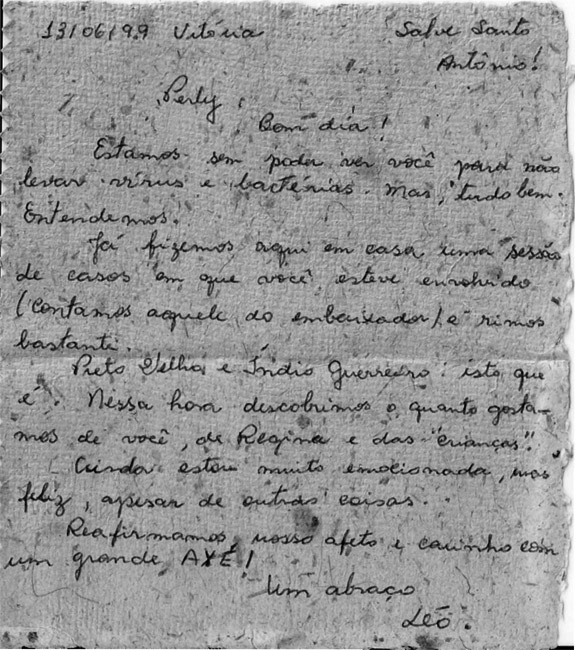 13/06/99 Vitória Salve Santo
Antônio!
Perly,
Bom dia!
Estamos sem poder ver você para não
levar vírus e bactérias. Mas, tudo bem.
Entendemos.
Já fizemos aqui em casa uma sessão
de casos em que você esteve envolvido
(contamos aquele do embaixador) e rimos
bastante.
Preto Velho e Índio Guerreiro: isto que
é. Nessa hora descobrimos o quanto gosta-
mos de você, de Regina e das "crianças".
Ainda estou muito emocionada, mas
feliz, apesar de outras coisas.
Reafirmamos nosso afeto e carinho com
um grande AXÉ!
Um abraço
Léo.